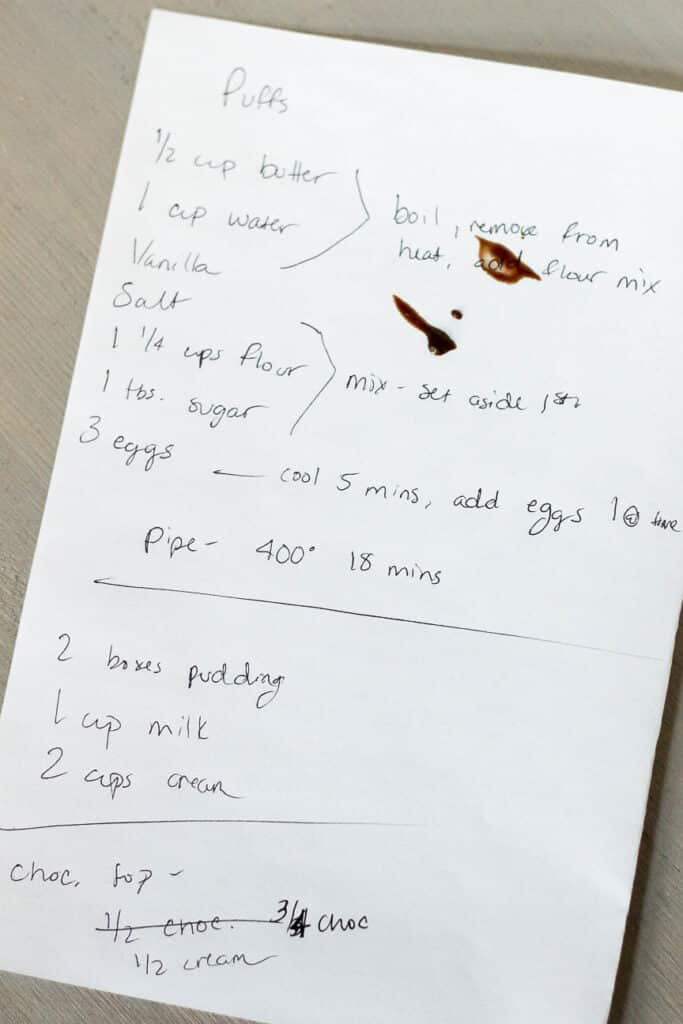 Puffs
1/2 cup butter
1 cup water
Vanilla
boil, remove from
heat, add flour mix
Salt
1 1/4 cups flour
1 tbs. sugar
mix - set aside 1st
3 eggs
cool 5 mins, add eggs 1 @ time
Pipe - 400° 18 mins
2 boxes pudding
1 cup milk
2 cups cream
choc. top -
1/2 choc. 3/4 choc
1/2 cream